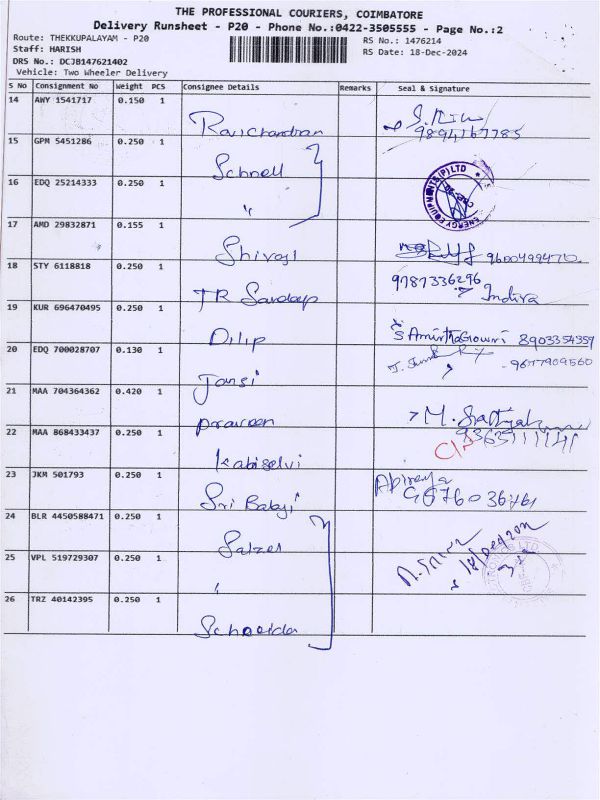 THE PROFESSIONAL COURIERS, COIMBATORE
Delivery Runsheet - P20 - Phone No.:0422-3505555 - Page No.:2
Route: THEKKUPALAYAM - P20
RS No.: 1476214
Staff: HARISH
RS Date: 18-Dec-2024
DRS No.: DCJB147621402
Vehicle: Two Wheeler Delivery
S No Consignment No Weight PCS Consignee Details Remarks Seal & Signature
14 AWY 1541717 0.150 1 Ravichandran 9894167785
15 GPM 5451286 0.250 1 Schnell
16 EDQ 25214333 0.250 1 "
ENERGY EQUIPMENTS (P) LTD
17 AMD 29832871 0.155 1 Shivaji 9600499470
18 STY 6118818 0.250 1 TR Sandeep 9787336296 Indira
19 KUR 696470495 0.250 1 Dilip S AmirthaGowri 8903354359
20 EDQ 700028707 0.130 1 Jansi 9677909560
21 MAA 704364362 0.420 1 praveen
22 MAA 868433437 0.250 1 Kabiselvi
23 JKM 501793 0.250 1 Sri Balaji
24 BLR 4450588471 0.250 1 Salzer
25 VPL 519729307 0.250 1 "
26 TRZ 40142395 0.250 1 Schneider